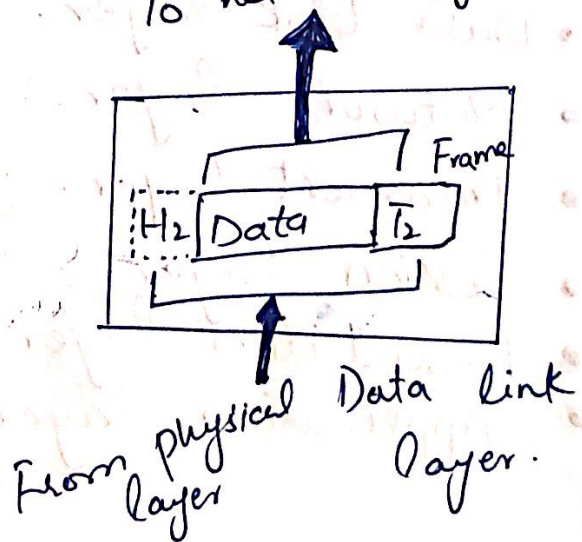 To
Frame
H2 Data T2
From physical
layer
Data link
layer.